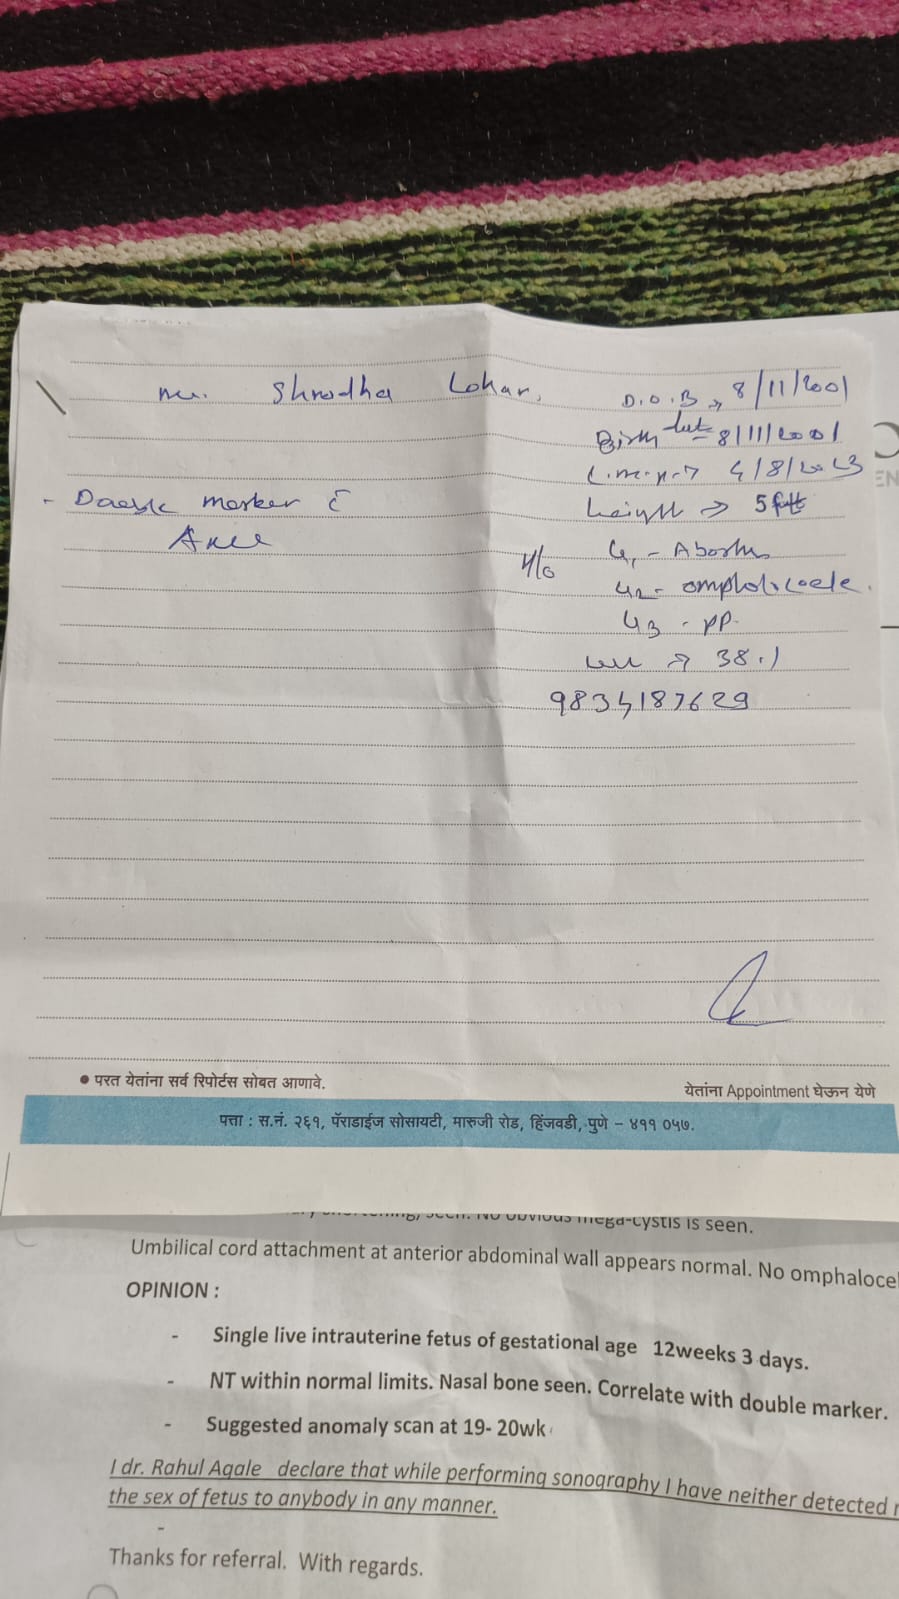 Shradha Lohar,
D.O.B → 8/11/2001
Birth date 8/11/2001
L.M.P → 4/8/2023
- Double marker c̄
height → 5
H/o G1 - Abortion
G2 - omphalocele.
G3 - PP.
→ 38.1
9834187629
EN
• परत येतांना सर्व रिपोर्टस सोबत आणावे.
येतांना Appointment घेऊन येणे
पत्ता : स.नं. २६१, पॅराडाईज सोसायटी, मारुजी रोड, हिंजवडी, पुणे - ४११ ०५७.
seen. No obvious mega-cystis is seen.
Umbilical cord attachment at anterior abdominal wall appears normal. No omphalocel
OPINION :
- Single live intrauterine fetus of gestational age 12weeks 3 days.
- NT within normal limits. Nasal bone seen. Correlate with double marker.
- Suggested anomaly scan at 19- 20wk
I dr. Rahul Agale declare that while performing sonography I have neither detected n
the sex of fetus to anybody in any manner.
-
Thanks for referral. With regards.